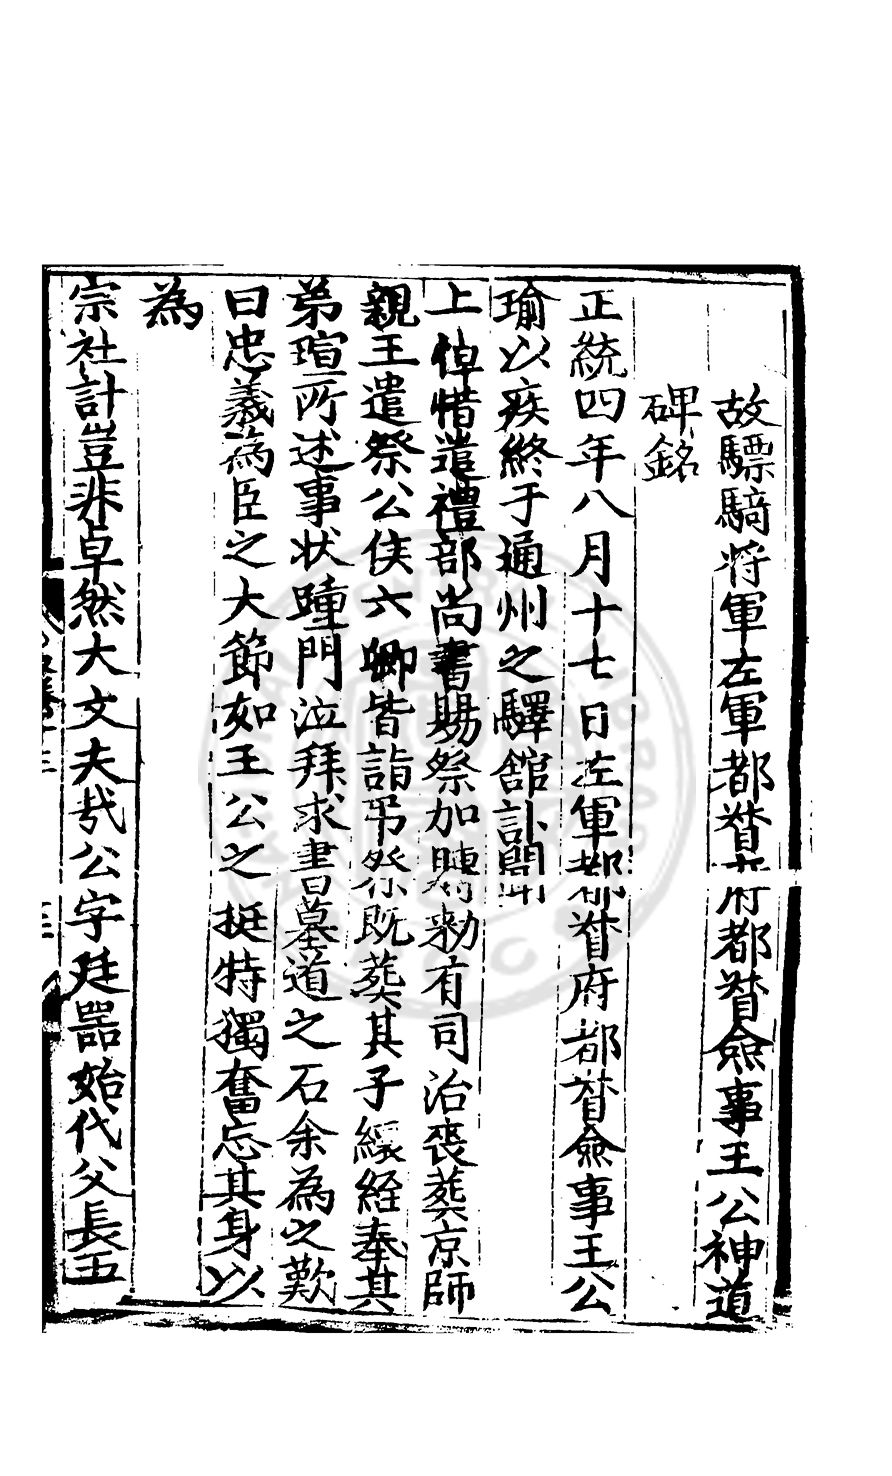 故驃騎將軍左軍都督府都督僉事王公神道
碑銘
正統四年八月十七日左軍都督府都督僉事王公
瑜以疾終于通州之驛舘訃聞
上悼惜遣禮部尚書賜祭加賻勑有司治䘮葬京師
親王遣祭公侯六卿皆詣弔祭既葬其子縗絰奉其
弟瑄所述事状踵門泣拜求書墓道之石余為之歎
曰忠義為臣之大節如王公之挺特獨奮忘其身以
為
宗社計豈非卓然大丈夫㢤公字廷噐始代父長五